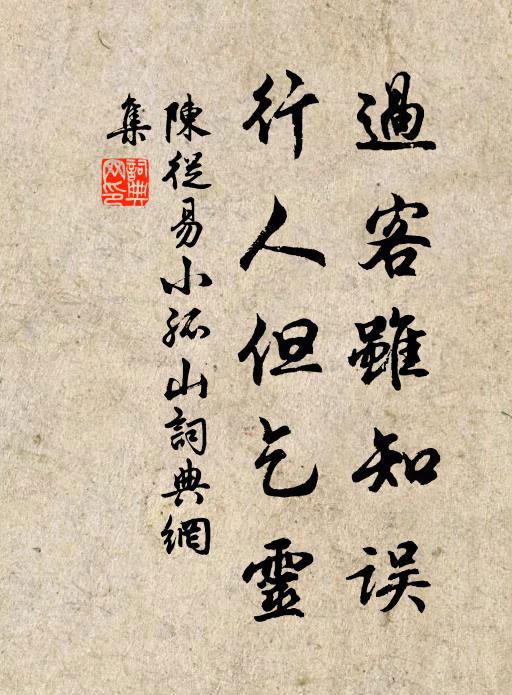 過客雖知誤
行人但乞靈
陳從易小孤山詞典網
集
詞典
網印